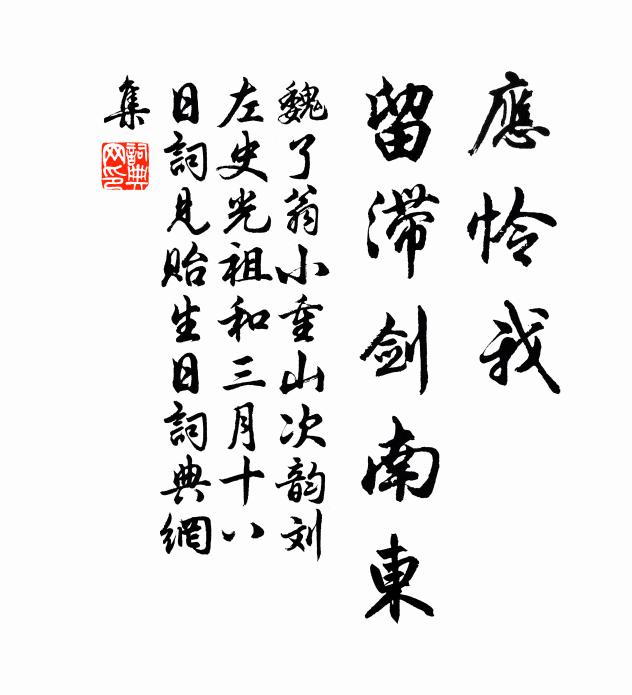 應怜我
留滯劍南東
魏了翁小重山次韵刘
左史光祖和三月十八
日詞見貽生日詞典網
集
詞典
网印